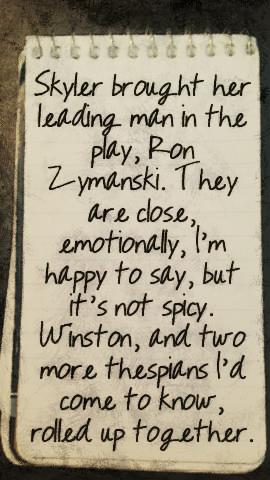 Skyler brought her
leading man in the
play, Ron
Zymanski. They
are close,
emotionally, I'm
happy to say, but
it's not spicy.
Winston, and two
more thespians I'd
come to know,
rolled up together.